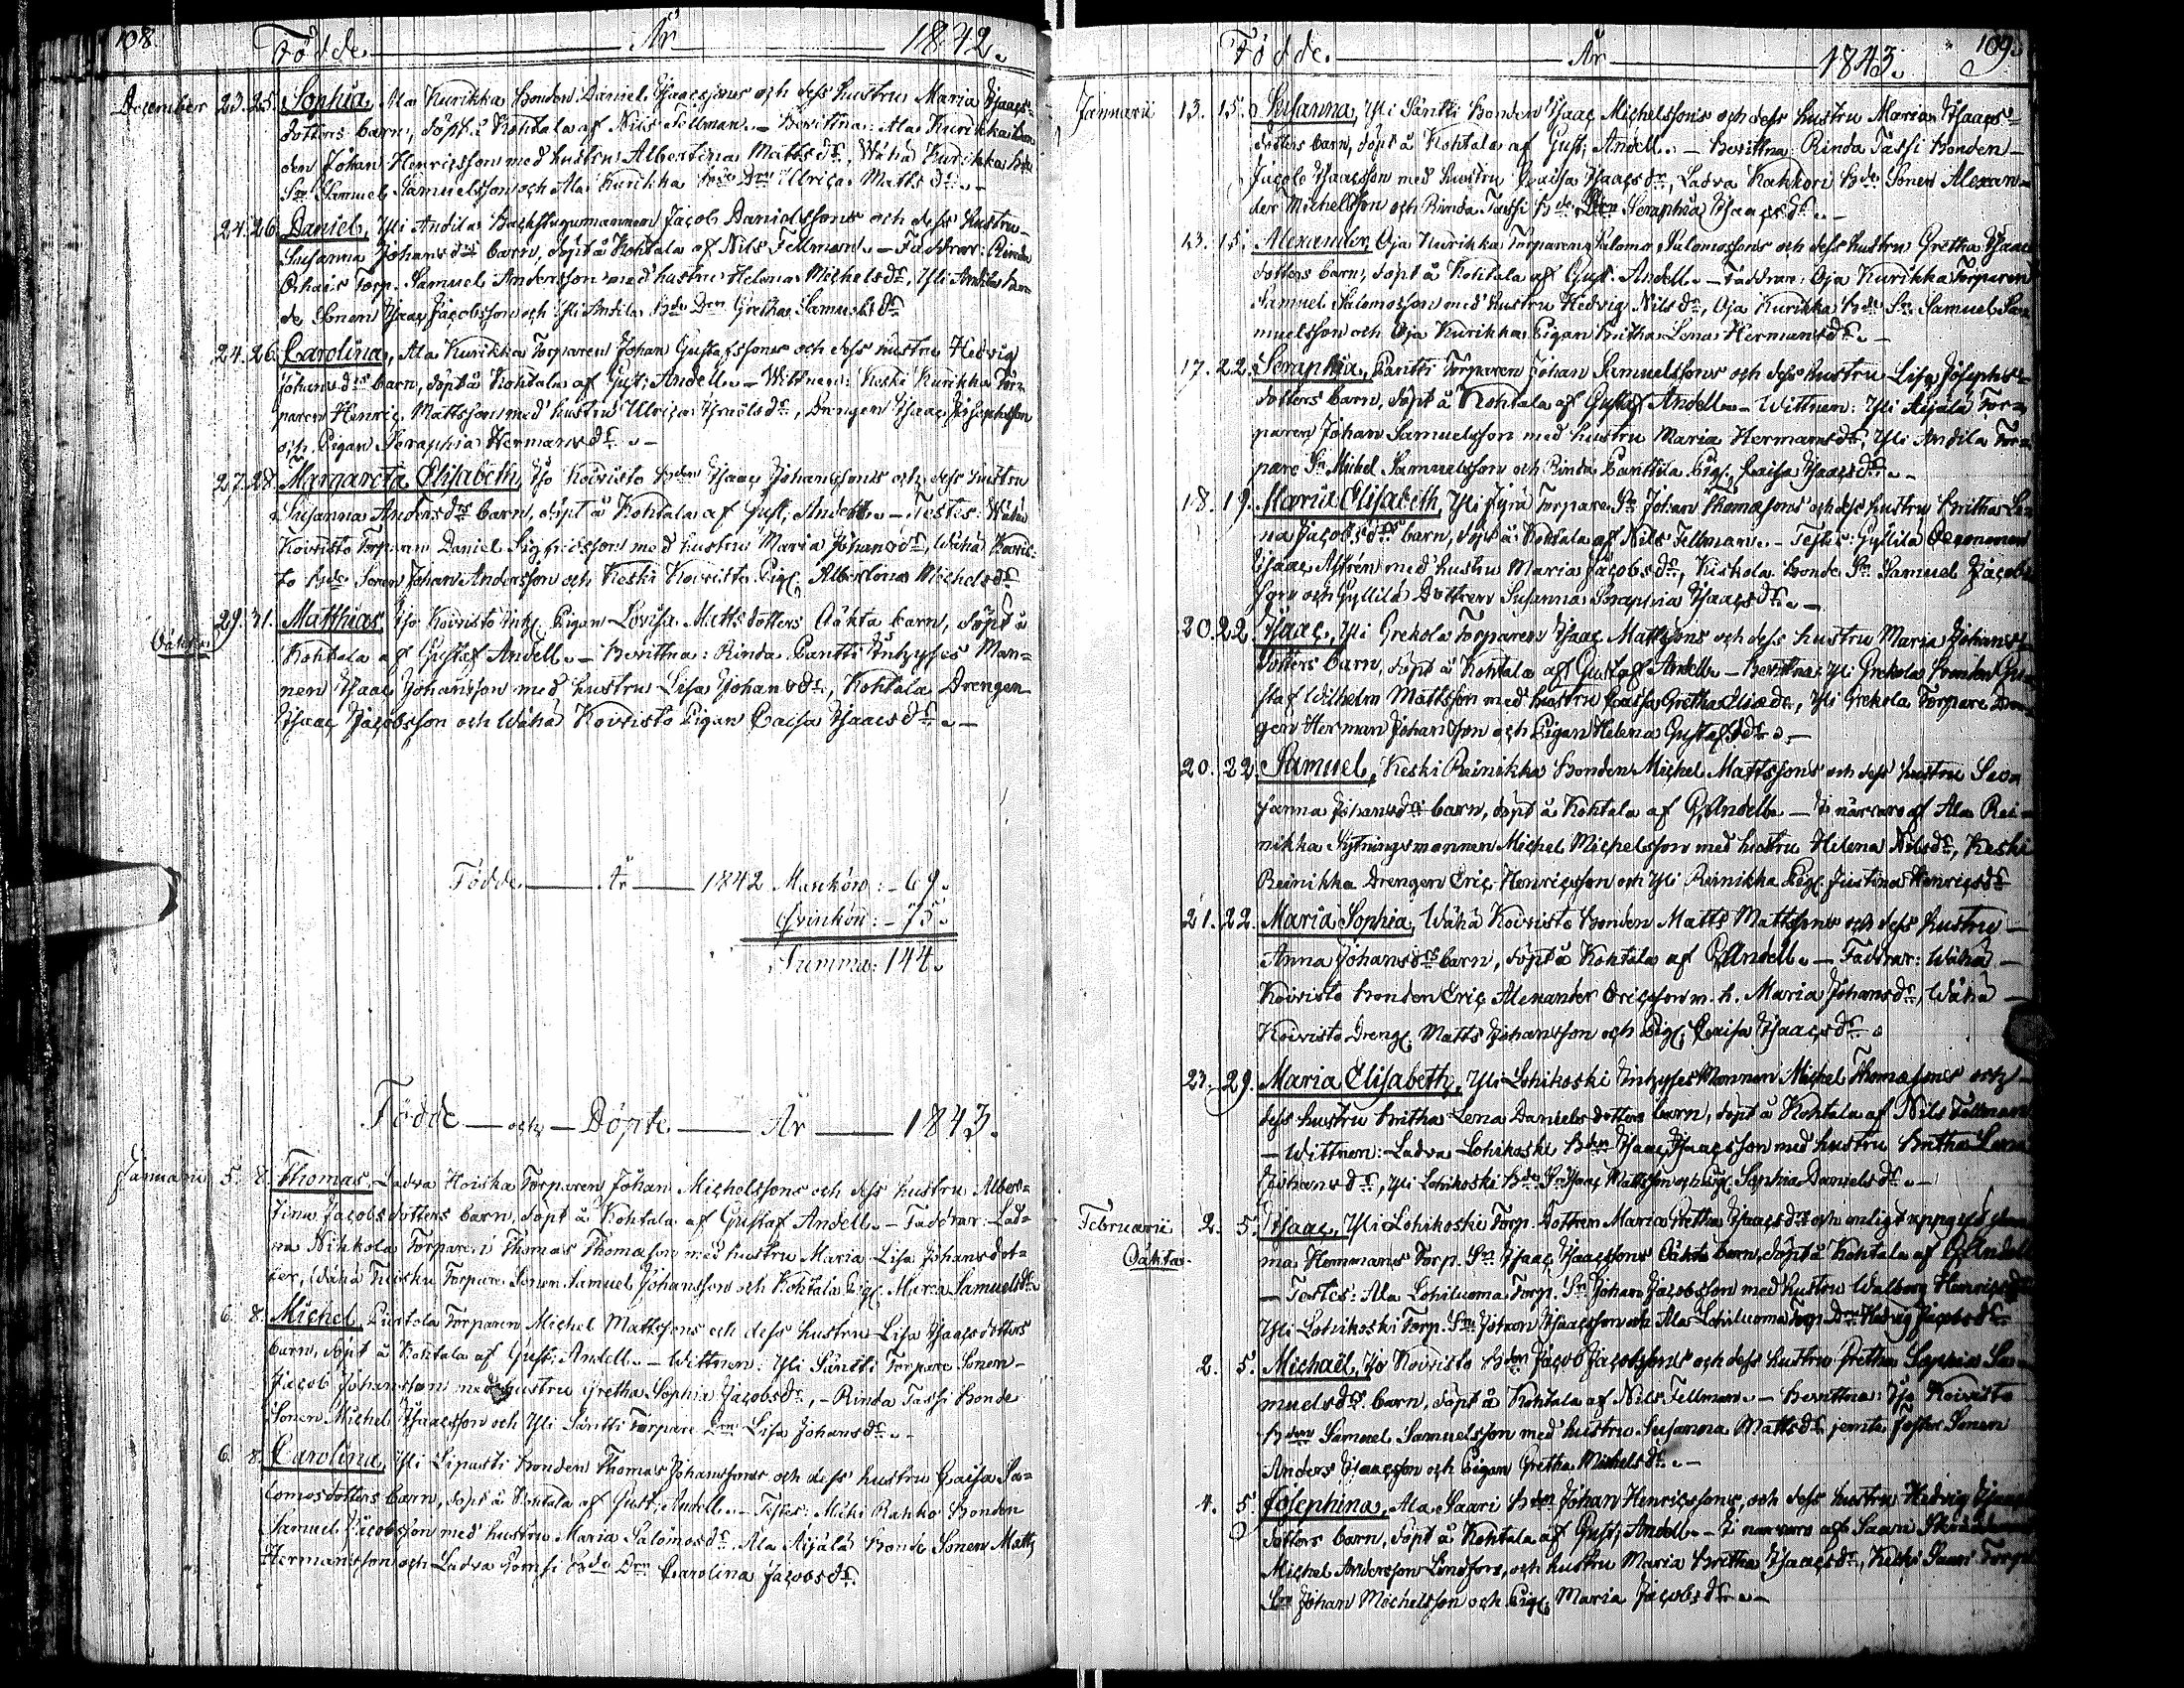 108.
Födde. År 1842.
December 23. 25. Sophia, Ala Kurikka Bonden Daniel Isaacssons och dess hustru Maria Isaacs-
dotters barn, döpt å Kohtala af Nils Fellman. - Bevittna: Ala Kurikka Bon-
den Johan Henricsson med hustru Albertina Mattsdr, Wähä Kurikka Bde
Sn Samuel Samuelsson och Ala Kurikka Bde Drn Ulrica Mattsdr. -
24. 26. Daniel, Yli Andila Backstugumannen Jacob Danielssons och dess hustru
Susanna Johansdrs barn, döpt å Kohtala af Nils Fellman. - Faddrar: Rinda
Torp. Samuel Andersson med hustru Helena Michelsdr, Yli Andila Bon-
de Sonen Isaac Jacobsson och Yli Andila Bde Drn Gretha Samuelsdr
24. 26. Carolina, Ala Kurikka Torparen Johan Gustafssons och dess hustru Hedvig
Johansdrs barn, döpt å Kohtala af Gust: Andell. - Wittnen: Keski Kurikka Tor-
paren Henric Mattsson med hustru Ulrica Israelsdr, Drengen Isaac Josephsson
och Pigan Seraphia Hermansdr. -
27. 28. Margareta Elisabeth, Iso Koivisto Bden Isaac Johanssons och dess hustru
Susanna Andersdrs barn, döpt å Kohtala af Gust: Andell. - Testes: Wähä
Koivisto Torparen Daniel Sigfridsson med hustru Maria Johansdr, Wähä Koivis-
to Bde Sonen Johan Andersson och Keski Koivisto Pig. Albertina Michelsdr
Oäkta 29. 31. Matthias, Iso Koivisto Inh. Pigan Lovisa Mattsdotters Oäkta barn, döpt å
Kohtala af Gustaf Andell. - Bevittna: Rinda Pantti Inhyses Man-
nen Isaac Johansson med hustru Lisa Johansdr, Kohtala Drengen
Isaac Jacobsson och Wähä Koivisto Pigan Caisa Isaacsdr. -
Födde År 1842 Mankön: - 69.
Qvinkön: - 75.
Summa: 144.
Födde och Döpte År 1843.
Januarii 5. 8. Thomas, Ladva Hoiska Torparen Johan Michelssons och dess hustru Alber-
tina Jacobsdotters barn, döpt å Kohtala af Gustaf Andell. - Faddrar: Lad-
va Nikkola Torparen Thomas Thomasson med hustru Maria Lisa Johansdot-
ter, Wähä Torpare Sonen Samuel Johansson och Kohtala Pig. Maria Samuelsdr.
6. 8. Michel, Piirtola Torparen Michel Mattssons och dess hustru Lisa Isaacsdotters
barn, döpt å Kohtala af Gust: Andell. - Wittnen: Yli Säntti Torpare Sonen
Jacob Johansson med hustru Gretha Sophia Jacobsdr, - Rinda Tassi Bonde
Sonen Michel Isaacsson och Yli Säntti Torpare Drn Lisa Johansdr. -
6. 8. Carolina, Yli Lipasti Bonden Thomas Johanssons och dess hustru Caisa Sa-
lomosdotters barn, döpt å Kohtala af Gust: Andell. - Testes: Mäki Rahko Bonden
Samuel Jacobsson med hustru Maria Salomosdr. Ala Äijälä Bonde Sonen Matts
Hermansson och Ladva Bde Drn Carolina Jacobsdr.
109.
Födde. År 1843.
Januarii 13. 15. Susanna, Yli Säntti Bonden Isaac Michelssons och dess hustru Maria Isaacs-
dotters barn, döpt å Kohtala af Gust: Andell. - Bevittna: Rinda Tassi Bonden
Jacob Isaacsson med hustru Caisa Isaacsdr, Ladva Kahkori Bde Sonen Alexan-
der Michelsson och Rinda Tassi Bde Drn Seraphia Isaacsdr. -
13. 15. Alexander, Oja Kurikka Torparens Salomo Salomossons och dess hustru Gretha Isaacs
dotters barn, döpt å Kohtala af Gust. Andell. - Faddrar: Oja Kurikka Torparen
Samuel Salomosson med hustru Hedvig Nilsdr, Oja Kurikka Bde Sn Samuel Sa-
muelsson och Oja Kurikka Pigan Britha Lena Hermansdr. -
17. 22. Seraphia, Pantti Torparen Johan Samuelssons och dess hustru Lisa Josephs-
dotters barn, döpt å Kohtala af Gustaf Andell. - Wittnen: Yli Äijälä Tor-
paren Johan Samuelsson med hustru Maria Hermansdr, Yli Andila Tor-
pare Sn Michel Samuelsson och Rinda Panttila Pig. Caisa Isaacsdr. -
18. 19. Maria Elisabeth, Yli Jyrä Torpare Sn Johan Thomassons och dess hustru Britha Le-
na Jacobsdrs barn, döpt å Kohtala af Nils Fellman. - Testes: Gyllilä Oeconomen
Isaac Astrén med hustru Maria Jacobsdr, Kiskola Bonde Sn Samuel Jacobs-
son och Gyllilä Dottren Susanna Seraphia Isaacsdr. -
20. 22. Isaac, Yli Grekola Torparen Isaac Mattssons och dess hustru Maria Johans-
dotters barn, döpt å Kohtala af Gustaf Andell. - Bevittna: Yli Grekola Bonden Gu-
staf Wilhelm Mattsson med hustru Caisa Gretha Eliædr, Yli Grekola Torpare Dren-
gen Herman Johansson och Pigan Helena Gustafsdr. -
20. 22. Samuel, Keski Reinikka Bonden Michel Mattssons och dess hustru
Johansdrs barn, döpt å Kohtala af G. Andell. - I närvaro af Ala Rei-
nikka Sytningsmannen Michel Michelsson med hustru Helena Nilsdr, Keski
Reinikka Drengen Eric Henricsson och Yli Reinikka Pig. Justina Henricsdr
21. 22. Maria Sophia, Wähä Koivisto Bonden Matts Mattssons och dess hustru
Anna Johansdrs barn, döpt å Kohtala af G. Andell. - Faddrar: Wähä
Koivisto Bonden Eric Alexander Ericsson m. h. Maria Johansdr, Wähä
Koivisto Dreng. Matts Johansson och Pig. Caisa Isaacsdr.
23. 29. Maria Elisabeth, Yli Lohikoski Inhyses Mannen Michel Thomassons och
dess hustru Britha Lena Danielsdotters barn, döpt å Kohtala af Nils Fellman
- Wittnen: Ladva Lohikoski Bden Isaac Isaacsson med hustru Britha Lena
Johansdr, Yli Lohikoski Bde Sn Isaac Mattsson och Pig. Sophia Danielsdr. -
Februarii Oäkta. 2. 5. Isaac, Yli Lohikoski Torp. Dottren Maria Gretha Isaacsdrs och enligt uppgift
Hemmans Torp. Sn Isaac Isaacssons Oäkta barn, döpt å Kohtala af G. Andell
- Testes: Ala Lohiluoma Torp. Sn Johan Jacobsson med hustru Walborg Henricsdr
Yli Lohikoski Torp. Sn Johan Isaacsson och Ala Lohiluoma Torp. Drn Hedvig Jacobsdr
2. 5. Michaël, Iso Koivisto Bden Jacob Jacobssons och dess hustru Gretha Sophia Sa-
muelsdrs barn, döpt å Kohtala af Nils Fellman. - Bevittna: Iso Koivisto
Bden Samuel Samuelsson med hustru Susanna Mattsdr jemte Foster Sonen
Anders Isaacsson och Pigan Gretha Michelsdr. -
4. 5. Josephina, Ala Saari Bden Johan Henricssons, och dess hustru Hedvig Isaacs
dotters barn, döpt å Kohtala af Gust: Andell. - I närvaro af Saari
Michel Andersson Lindfors, och hustru Maria Britha Isaacsdr, Keski Saari Torp.
Sn Johan Michelsson och Pig. Maria Jacobsdr. -